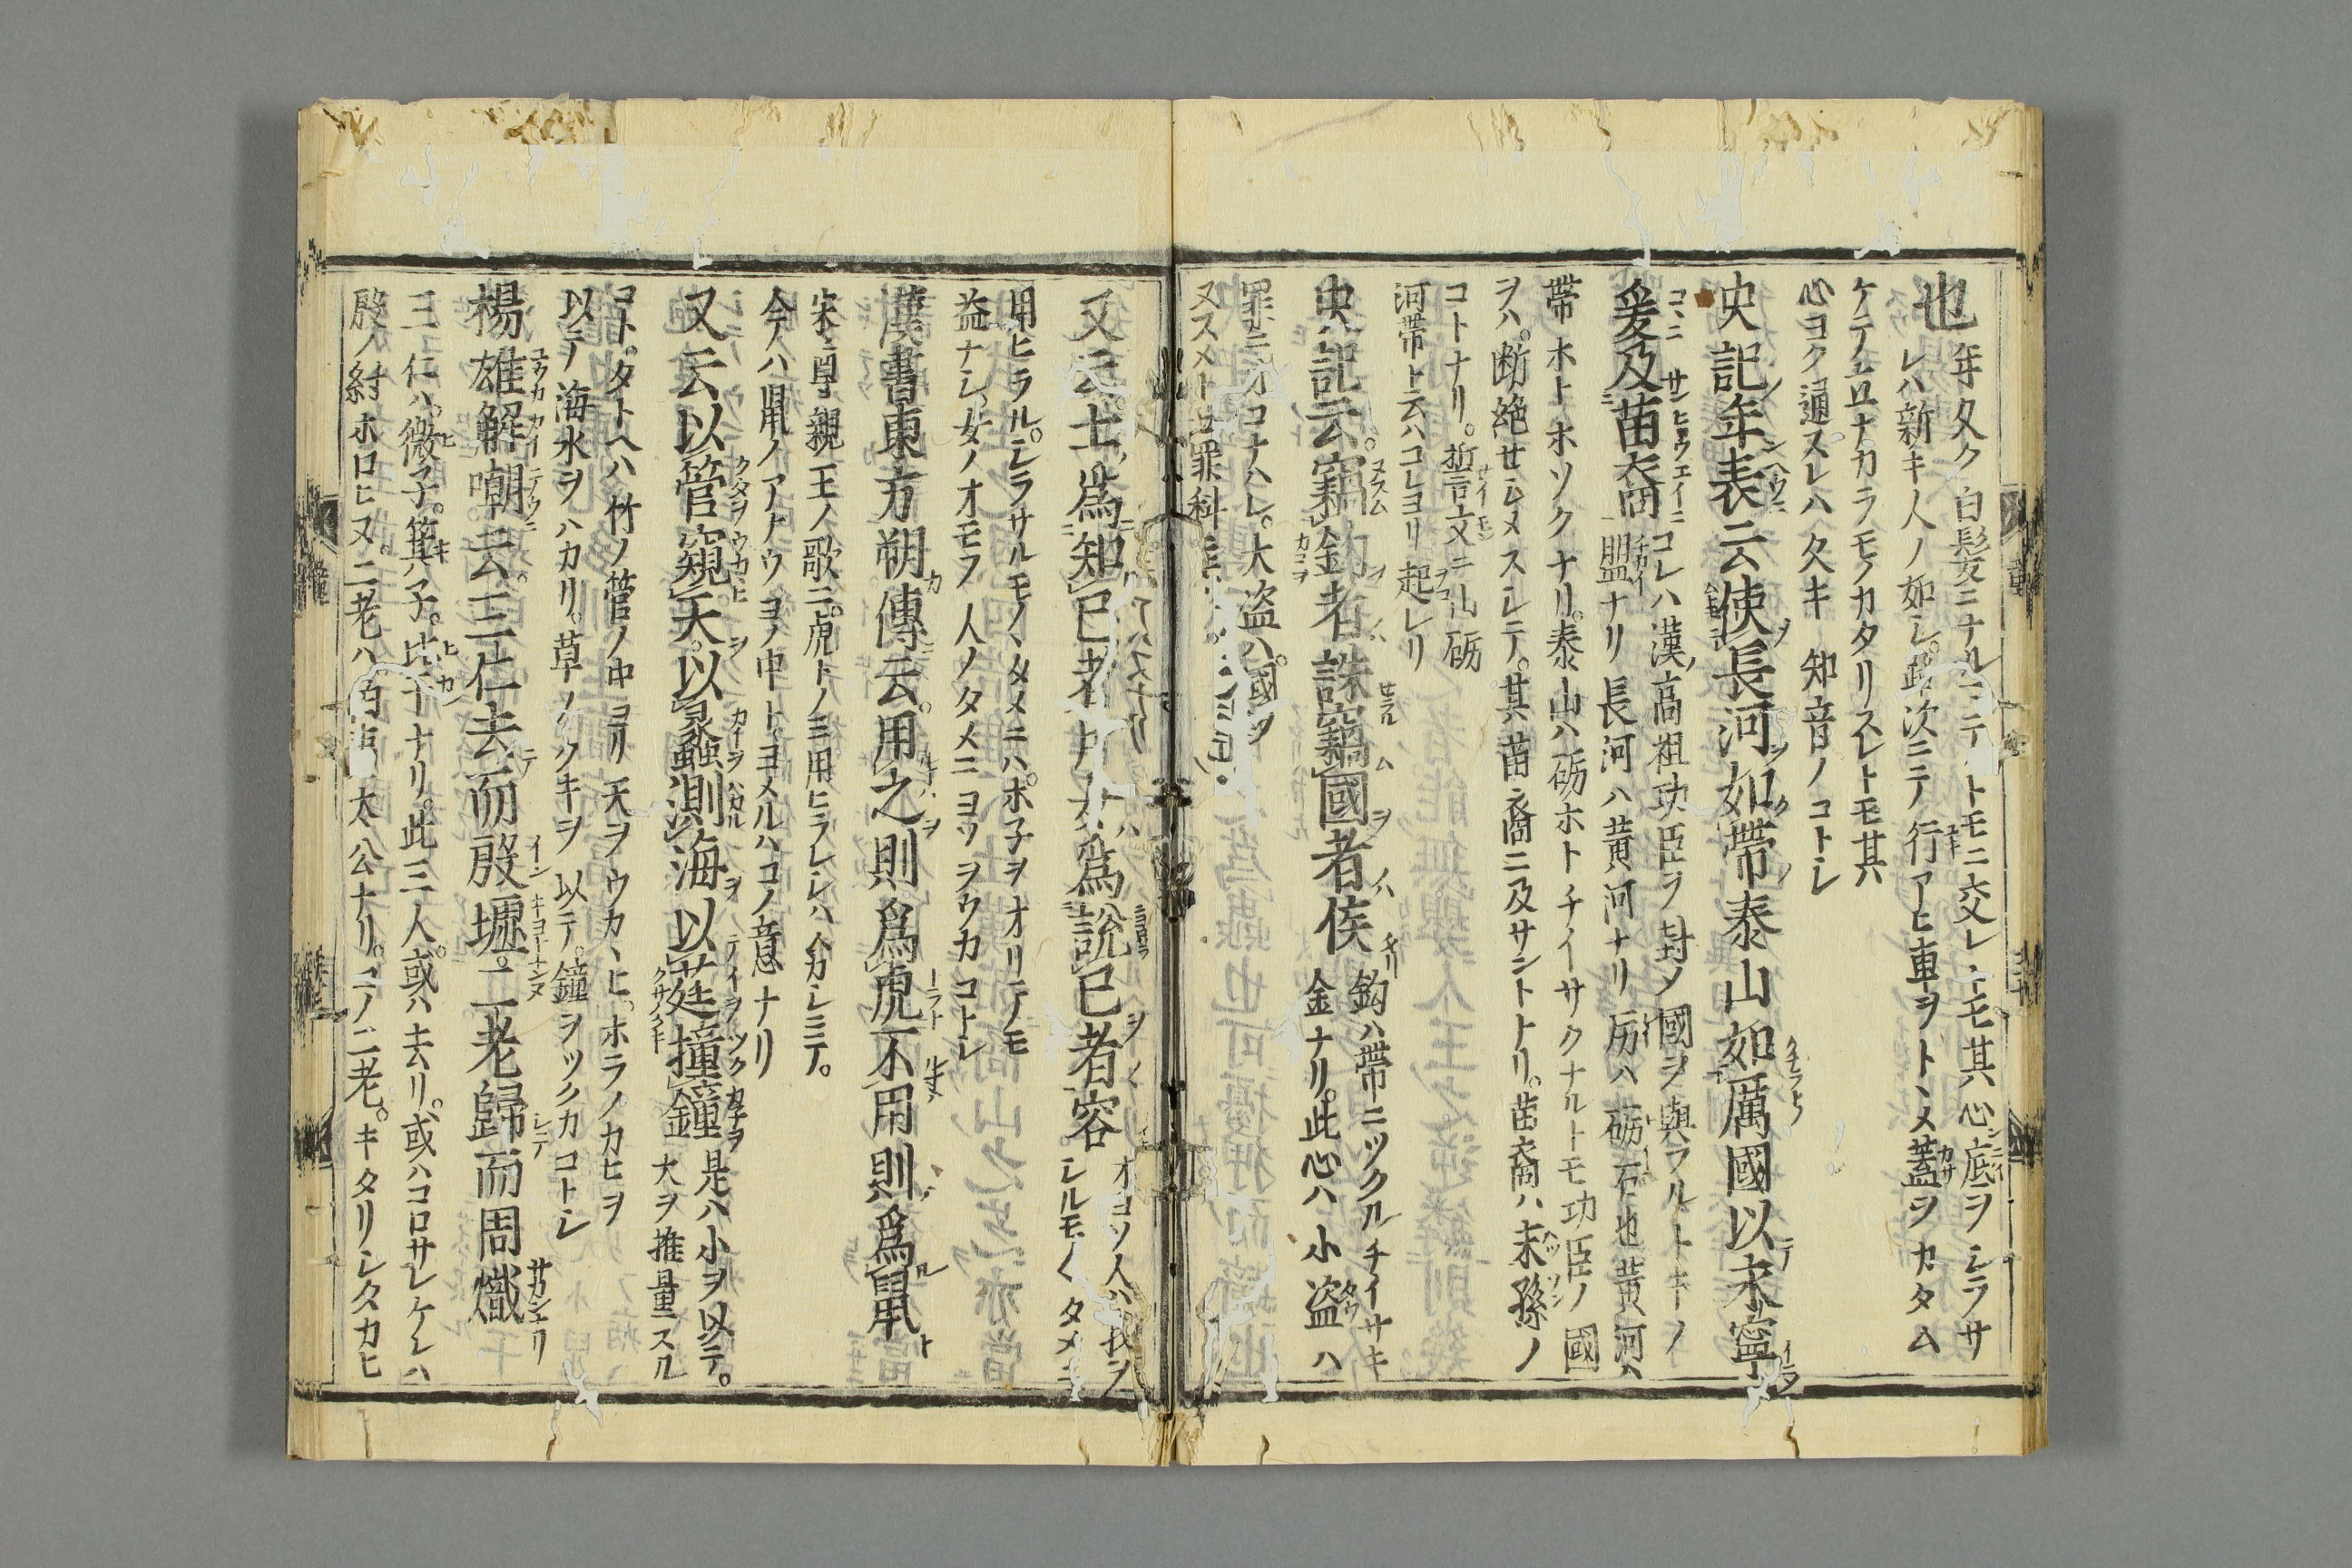 也 年久ク白髪ニナルマテトモニ交レトモ其心底ヲシラサ
レハ新キ人ノ如シ路次ニテ行アヒ車ヲトヽメ蓋ヲカタム
ケテノ立ナカラモノカタリスレトモ其
心ヨク通スレハ久キ知音ノコトシ
史記年表ニ云使長河如帯泰山如厲國以永寧
爰及苗裔 コヽニ サンヒョウエイニコレハ漢ノ高祖功臣ヲ封メ國ヲ與フルトキノ
盟ナリ長河ハ黄河ナリ厉ハ砺石也黄河ハ
帯ホトホソクナリ泰山ハ砺ホトチイサクナルトモ功臣ノ國
ヲハ断絶セシメスシテ其苗裔ニ及サントナリ苗裔ハ末孫ノ
コトナリ誓文ニ山砺
河帯ト云ハコレヨリ起レリ
史記云竊鈎者誅竊國者侯 鈎ハ帯ニツクルチイサキ
金ナリ此心ハ小盗ハ
罪ニヲコナハレ大盗ハ國ヲ
ヌスメトモ罪科
又云士為知己者 女為説己者容 オヨソ人ハ我ヲ
シルモノヽタメニ
用ヒラルシラサルモノヽタメニハホ子ヲオリテモ
益ナシ女ノオモフ人ノタメニヨソヲウカコトシ
漢書東方朔傳云用之則為虎不用則為鼠
宋尊親王ノ歌ニ虎トノミ用ヒラレシハムカシミテ
今ハ鼠ノアナウヨノ中トヨメルハコノ意ナリ
又云以管窺天以蠡測海以莛撞鐘 是ハ小ヲ以テ
大ヲ推量スル
コトタトヘハ竹ノ管ノ中ヨリ天ヲウカヽヒホラノカヒヲ
以テ海水ヲハカリ草ノクキヲ以テ鐘ヲツクカコトシ
楊雄解嘲云三仁去而殷墟二老歸而周熾
三仁ハ微子箕子比干ナリ此三人或ハ去リ或ハコロサレケレハ
殷ノ紂ホロヒヌ二老ハ 太公ナリコノ二老キタリシタカヒ